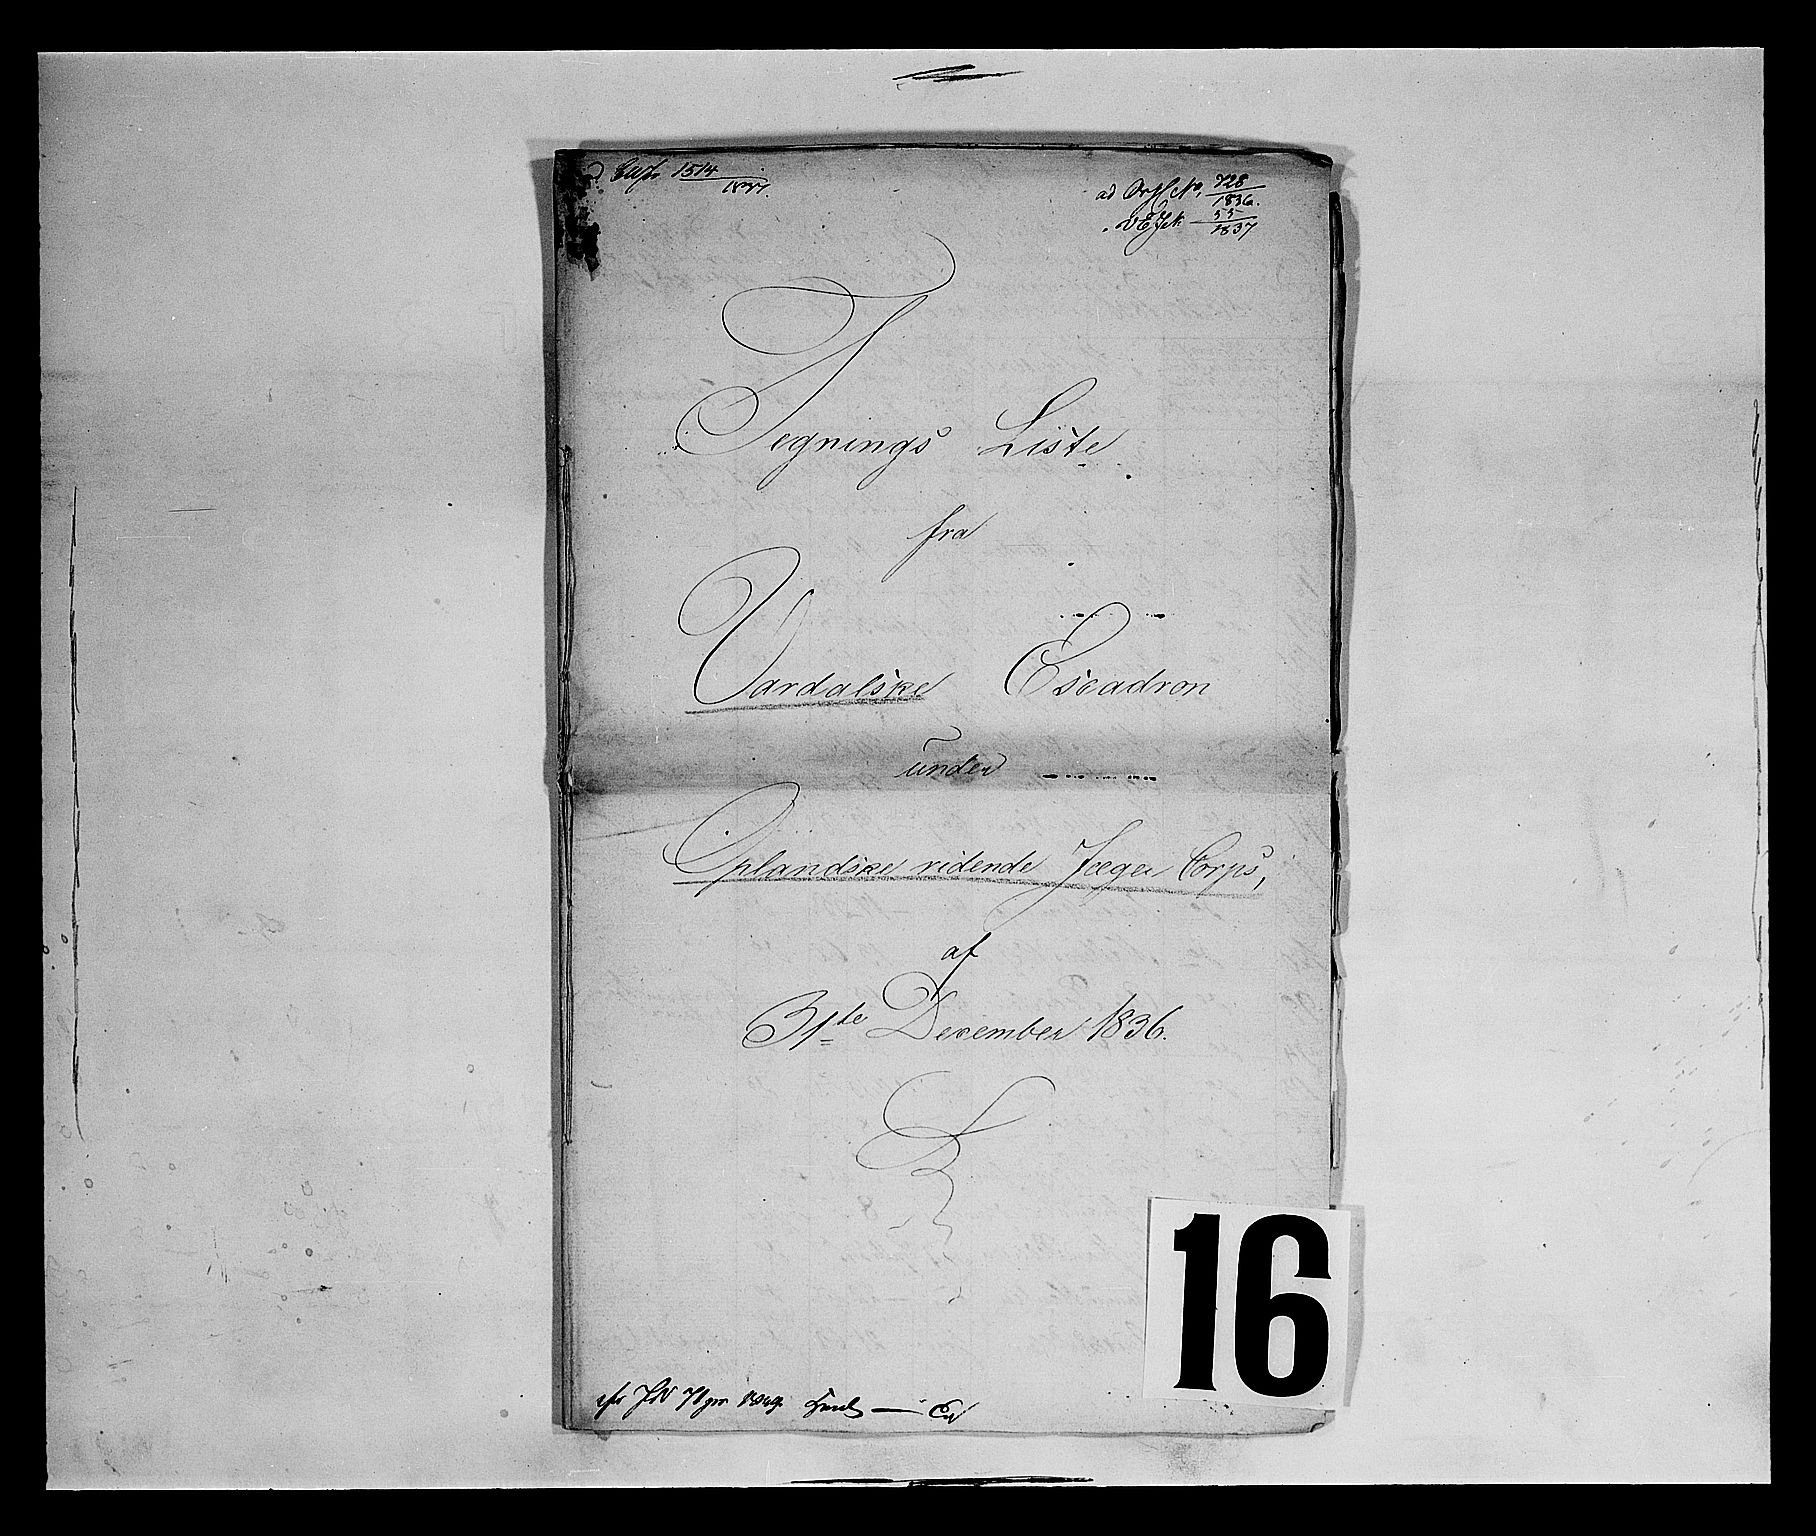 1514
1837.
ad No. 728
1836.
55
1837
Tegnings Liste
fra
Vardalske Escadron
under
Oplandske ridende Jæger Corps,
af
31te December 1836.
16